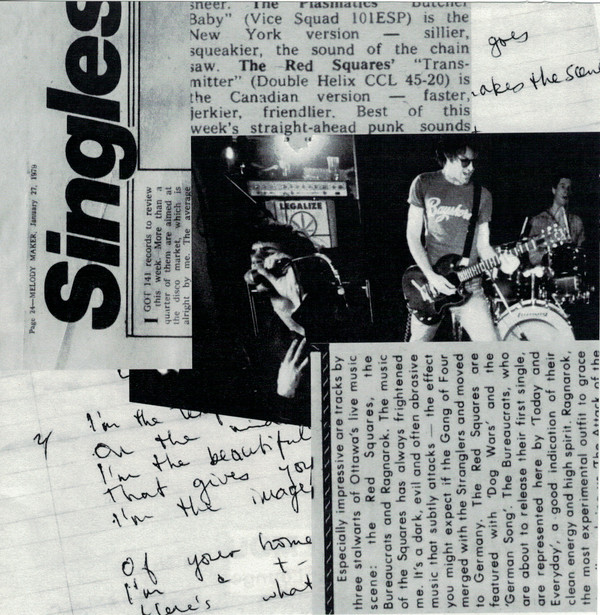 Singles
Page 24—MELODY MAKER, January 27, 1979
I GOT 141 records to review
this week. More than a
quarter of them are aimed at
the disco market, which is
alright by me. The average
sneer. The Plasmatics' "Butcher
Baby" (Vice Squad 101ESP) is the
New York version — sillier,
squeakier, the sound of the chain
saw. The Red Squares' "Trans-
mitter" (Double Helix CCL 45-20) is
the Canadian version — faster,
jerkier, friendlier. Best of this
week's straight-ahead punk sounds
goes
makes the scene
LEGALIZE
I'm the
On the
I'm the beautiful
That gives you
I'm the image
Of your home
I'm a t-
Here's what
Especially impressive are tracks by
three stalwarts of Ottawa's live music
scene: the Red Squares, the
Bureaucrats and Ragnarok. The music
of the Squares has always frightened
me. It's a dark, evil and often abrasive
music that subtly attacks — the effect
you might expect if the Gang of Four
merged with the Stranglers and moved
to Germany. The Red Squares are
featured with 'Dog Wars' and the
'German Song'. The Bureaucrats, who
are about to release their first single,
are represented here by 'Today and
Everyday', a good indication of their
clean energy and high spirit. Ragnarok,
the most experimental outfit to grace
The Attack of the